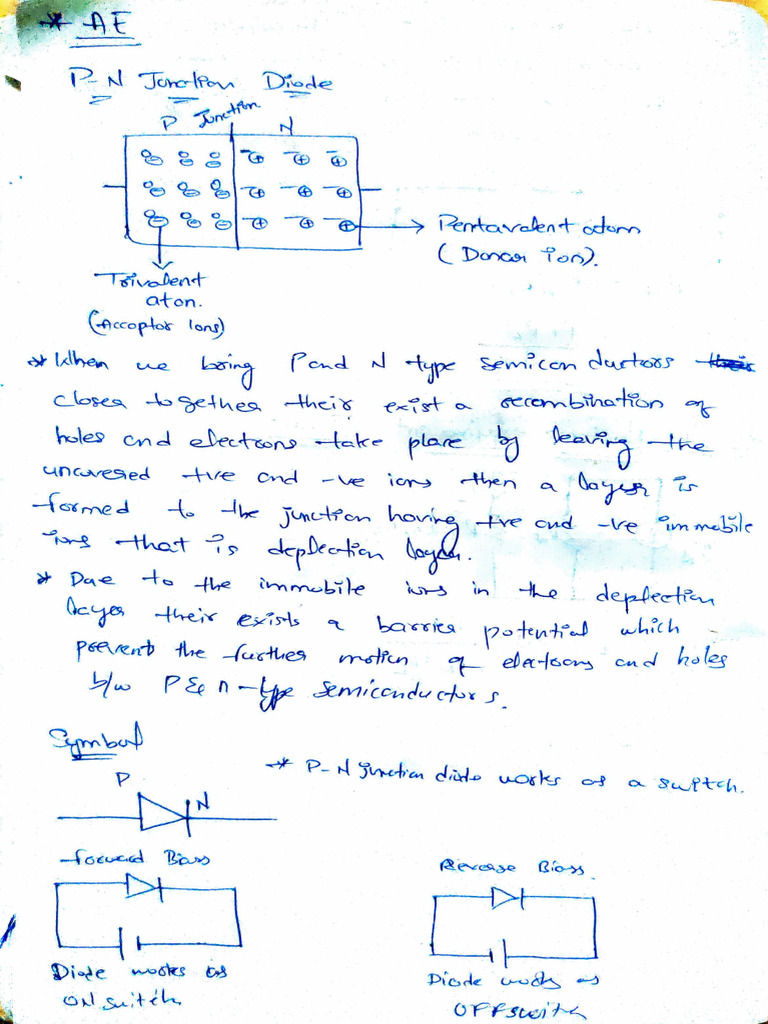 * AE
P-N Junction Diode
P Junction N
Pentavalent atom
(Donor ion).
Trivalent
aton.
(Acceptor Ions)
* When we bring P and N type semiconductors
closer together their exist a recombination of
holes and electrons take place by leaving the
uncovered +ve and -ve ions then a layer is
formed to the junction having +ve and -ve immobile
ions that is deplection layer.
* Due to the immobile ions in the deplection
layer their exists a barrier potential which
prevent the further motion of electrons and holes
b/w P & n-type semiconductors.
Symbol
* P-N junction diode works as a switch.
P
N
forward Bias
Reverse Bias.
Diode works as
ON switch
Diode works as
OFF switch